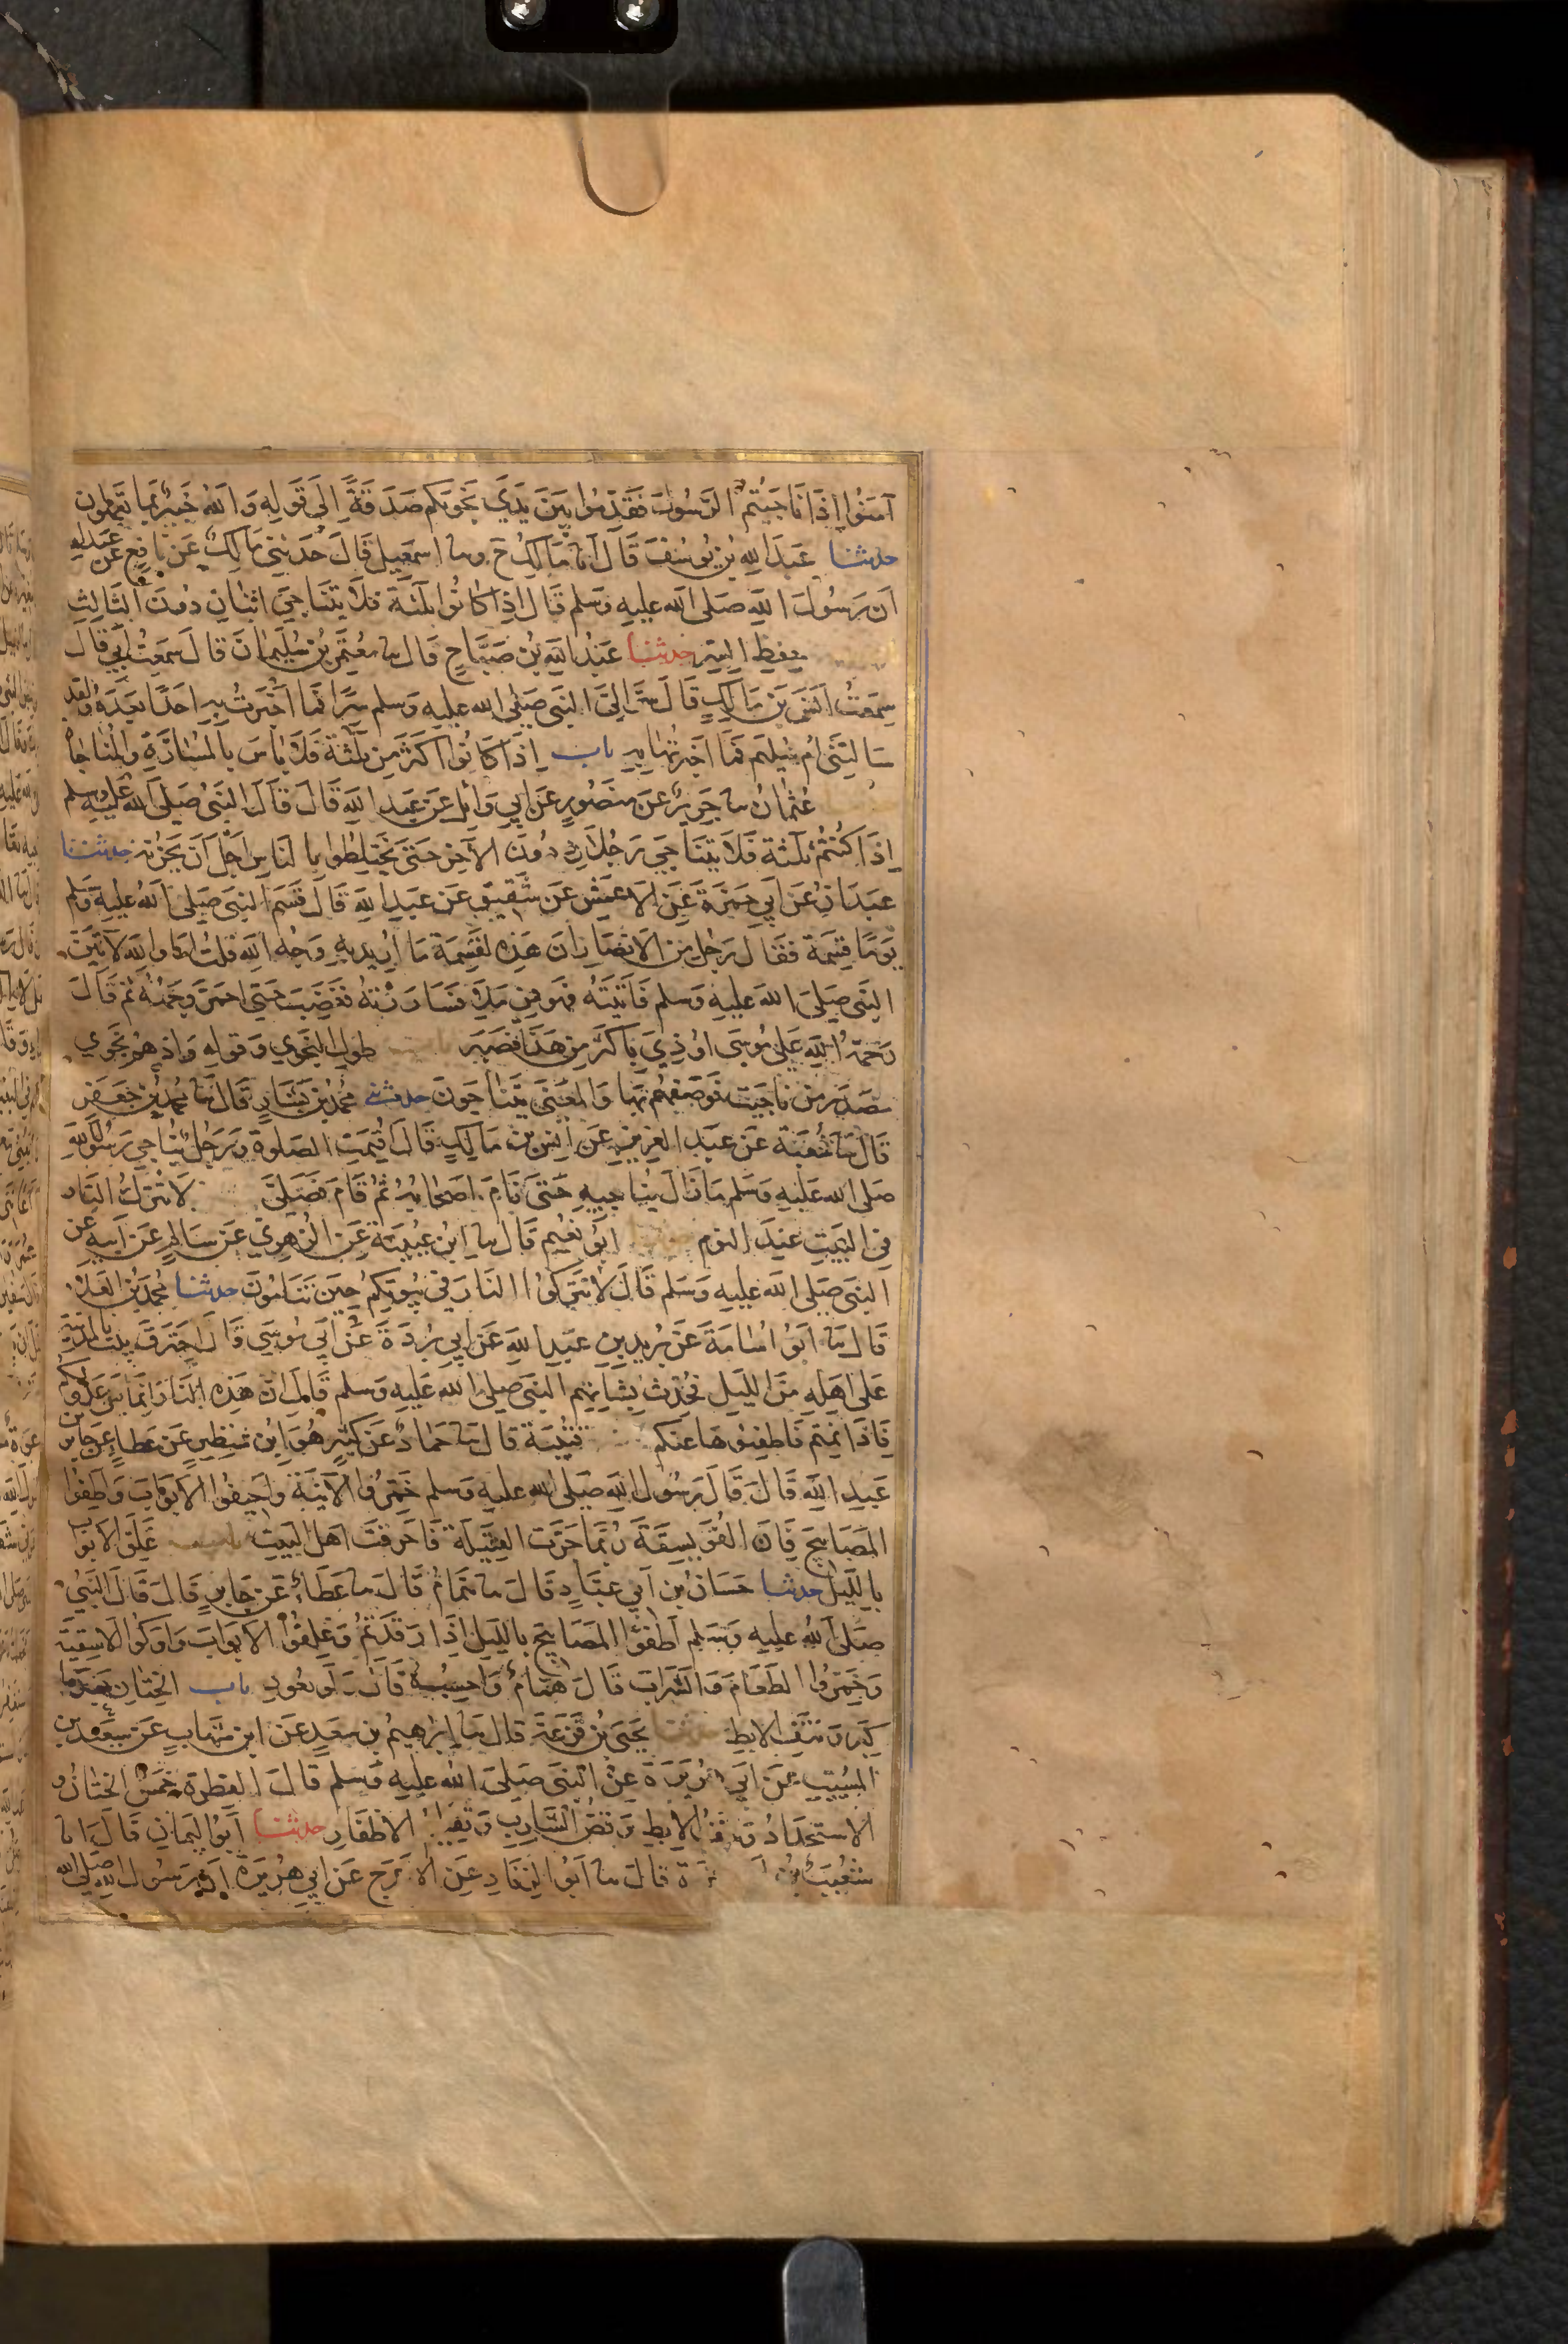 آمَنُوا إِذَا نَاجَيْتُمُ الرَّسُولَ فَقَدِّمُوا بَيْنَ يَدَيْ نَجْوَىكُم صَدَقَةً إِلَى قَوْلِهِ وَاللهُ خَبِيرٌ بِمَا تَعْمَلُونَ
حدثنا عَبْدُ اللهِ بْنُ يُوسُفَ قَالَ انا مَالِكٌ ح وسا اسمعِيل قَالَ حَدَّثَنِي مَالِكٌ عَنْ نَافِعٍ عَنْ عَبْدِ اللهِ
أن رَسُولَ اللهِ صلى الله عليه وسلم قَالَ إِذَا كَانُوا ثَلٰثَة فَلَا يَتَنَاجَى اثْنَانِ دُونَ الثَّالِثِ
حِفظِ السِّرِّ حدثنا عَبْدُ اللهِ بْنُ صَبَّاحٍ قَالَ سا مُعْتَمِرُ بْنُ سُلَيْمَانَ قَالَ سَمِعْتُ أَبِي قَالَ
سَمِعْتُ أَنَسَ بْنَ مَالِكٍ قَالَ أَسَرَّ إِلَيَّ النَّبِيُّ صَلَى الله عليه وسلم سِرًّا فَمَا أَخْبَرْتُ بِهِ أَحَدًا بَعْدَهُ وَلَقَد
سَالَتْنِي أُمُّ سُلَيْمٍ فَمَا أَخْبَرْتُهَا بِهِ باب إِذَا كَانُوا أَكْثَرَ مِنْ ثَلٰثَة فَلَا بَاسَ بِالْمُسَارَّةِ وَالْمُنَاجَاة
عُثْمَانُ سا جَرِيرٌ عَنْ مَنْصُورٍ عَنْ أَبِي وَائِلٍ عَنْ عَبْدِ اللهِ قَالَ قَالَ النَّبِيُّ صَلَى الله عليه وسلم
إِذَا كُنْتُمْ ثَلٰثَة فَلَا يَتَنَاجَى رَجُلَانِ دُونَ الآخَرِ حَتَّى تَخْتَلِطُوا بِالنَّاسِ أَجْلَ أَنْ يُحْزِنَهُ حدثنا
عَبْدَانُ عَنْ أَبِي حَمْزَةَ عَنِ الأَعْمَشِ عَنْ شَقِيقٍ عَنْ عَبْدِ اللهِ قَالَ قَسَمَ النَّبِيُّ صَلَى الله عليه وسلم
يَوْمًا قِسْمَة فَقَالَ رَجُلٌ مِنَ الأَنْصَارِ إِنَ هَذِهِ لَقِسْمَةٌ مَا أُرِيدَ بِهِ وَجْهُ اللهِ قُلْتُ أَمَا وَاللهِ لَآتِيَنَّ
النَّبِيَّ صَلَى الله عليه وسلم فَأَتَيْتُهُ فَهو فِي مَلَأ فَسَارَرْتُهُ فَغَضِبَ حَتَّى احْمَرَّ وَجْهُهُ ثم قَالَ
رَحْمَةُ اللهِ عَلَى مُوسَى أُوذِيَ بِأَكْثَرَ مِنْ هَذَا فَصَبَرَ باب طول النجوى وَقوله وَإِذ هُمْ نَجْوَى
مَصْدَر مِن نَاجَيْتُ فَوَصَفَهُمْ بِهَا وَالْمَعْنَى يَتَنَاجَوْنَ حدثني مُحَمَّدُ بْنُ بَشَّارٍ قَالَ سا مُحَمَّدُ بْنُ جَعْفَرٍ
قَالَ سا شُعْبَة عَنْ عَبْدِ الْعَزِيزِ عَنْ أَنَسِ بْنِ مَالِكٍ قَالَ أُقِيمَتِ الصَّلوٰة وَرَجُلٌ يُنَاجِي رَسُولَ اللهِ
صَلى الله عَلَيْهِ وَسَلم مَا زَالَ يُنَاجِيهِ حَتَّى نَامَ أصحَابُهُ ثُمَّ قَامَ فَصَلَّى لا تُتْرَكُ النَّار
فِي الْبَيْتِ عِنْدَ النَّوم أَبُو نُعَيْمٍ قَالَ سا ابْنُ عُيَيْنَة عَنِ الزُّهْرِيِّ عَنْ سَالِمٍ عَنْ أَبِيهِ عَنِ
النَّبِيِّ صَلَى الله عليه وسلم قَالَ لَا تَتْرُكُوا النَّارَ فِي بُيُوتِكُمْ حِينَ تَنَامُونَ حدثنا مُحَمَّدُ بْنُ الْعَلَاءِ
قَالَ سا أَبُو أُسَامَةَ عَنْ بُرَيْدِ بْنِ عَبْدِ اللهِ عَنْ أَبِي بُرْدَةَ عَنْ أَبِي مُوسَى قَالَ احْتَرَقَ بَيْتٌ بِالْمَدِينَةِ
عَلَى أَهْلِهِ مِنَ اللَّيْلِ فَحُدِّثَ بِشَأْنِهِمُ النَّبِيُّ صلى الله عَلَيْهِ وسلم قَالَ إِنَّ هَذِهِ النَّارَ إِنَّمَا هِيَ عَدُوٌّ لَكُمْ
فَإِذَا نِمْتُمْ فَاطْفِئُوهَا عَنْكُم قُتَيْبَة قَالَ سا حَمَّادٌ عَنْ كَثِيرٍ هُوَ ابْنُ شِنْظِيرٍ عَنْ عَطَاءٍ عَنْ جَابِرِ بْنِ
عَبْدِ اللهِ قَالَ قَالَ رَسُولُ اللهِ صَلَى الله عليه وسلم خَمِّرُوا الآنِيَةَ وَأَجِيفُوا الأَبْوَابَ وَاطْفِئُوا
الْمَصَابِيحَ فَإِنَّ الْفُوَيْسِقَةَ رُبَّمَا جَرَّتِ الْفَتِيلَةَ فَأَحْرَقَتْ أَهْلَ الْبَيْتِ باب غَلْق الأَبْوَاب
بِاللَّيْلِ حدثنا حَسَّانُ بْنُ أَبِي عَبَّادٍ قَالَ سا هَمَّامٌ قَالَ سا عَطَاءٌ عَنْ جَابِرٍ قَالَ قَالَ النَّبِيُّ
صَلَى الله عليه وسلم أَطْفِئُوا الْمَصَابِيحَ بِاللَّيْلِ إِذَا رَقَدْتُمْ وَغَلِّقُوا الأَبْوَابَ وَأَوْكُوا الأَسْقِيَةَ
وَخَمِّرُوا الطَّعَامَ وَالشَّرَابَ قَالَ هَمَّامٌ وَأَحْسِبُهُ قَالَ وَلَو بعُودٍ باب الْخِتَانِ بَعْدَ مَا
كَبِرَ وَنَتْفِ الإِبْطِ حدثنا يَحْيَى بْنُ قَزَعَةَ قال سا إِبْرٰهِيمُ بْنُ سَعْدٍ عَنِ ابْنِ شِهَابٍ عَنْ سَعِيدِ بْنِ
الْمُسَيِّبِ عَنْ أَبِي هُرَيْرَةَ عَنِ النَّبِيِّ صَلَى الله عليه وسلم قَالَ الْفِطْرَة خَمْسٌ الْخِتَانُ وَ
الاسْتِحْدَادُ وَنَتْفُ الإِبْطِ وَقَصُّ الشَّارِبِ وَتَقْلِيمُ الأَظْفَارِ حدثنا أَبُو الْيَمَانِ قَالَ انا
شُعَيْبُ بْنُ أَ زَة قَالَ سا أَبُو الزِّنَادِ عَنِ الأَعْرَجِ عَنْ أَبِي هُرَيْرَة أَنَّ رَسُولَ اللهِ صَلى الله